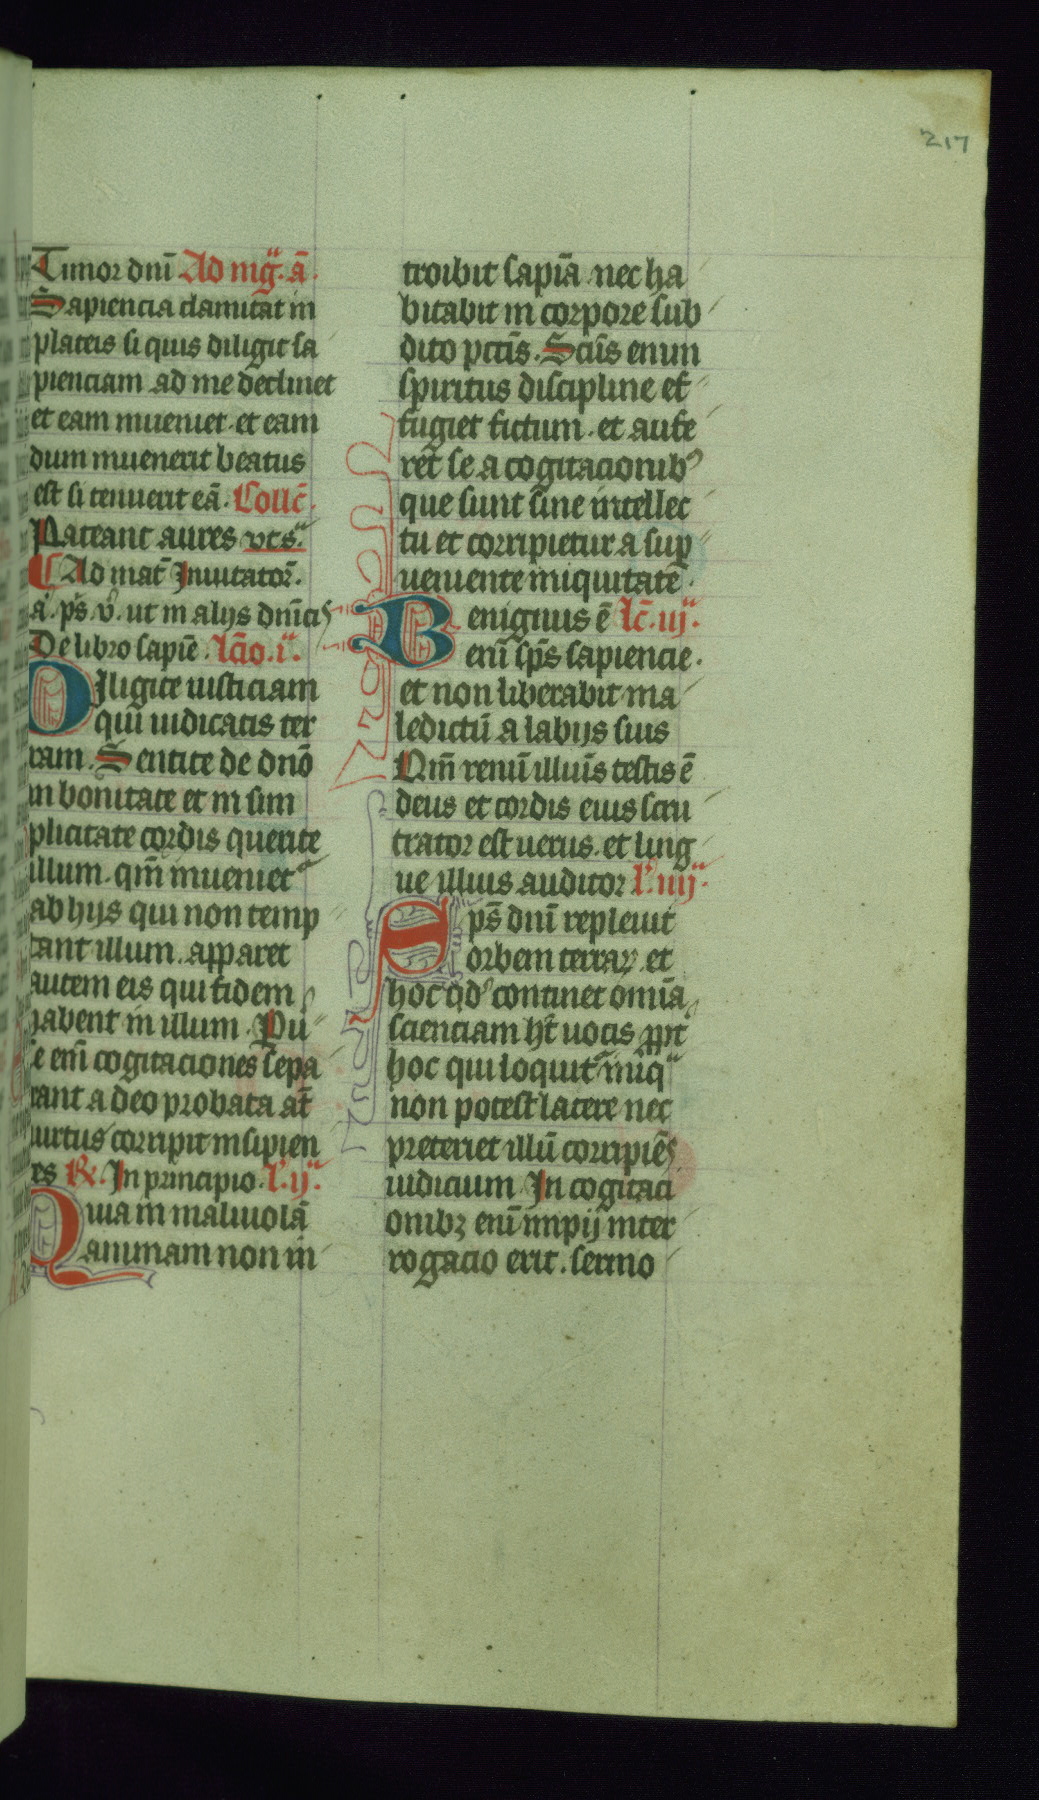 217
Timor dnī Ad mg̃. ā.
Sapiencia clamitat in
plateis si quis diligit sa
pienciam ad me declinet
et eam inueniet. et eam
dum inuenerit beatus
est si tenuerit eā. Collc̄.
Pateant aures vt s.
Ad mat̄ Inuitator̄.
a. ps. v. ut in alijs dn̄icis
De libro sapiē. lc̄io. i.
Diligite iusticiam
qui iudicatis ter
ram. Sentite de dnō
in bonitate et in sim
plicitate cordis querite
illum. qm̄ inueniet
ab hijs qui non temp
tant illum. apparet
autem eis qui fidem
habent in illum. Per
se enī cogitaciones sepa
rant a deo probata at̄
uirtus corripit insipien
tes R. In principio. l. ij.
Quia in maliuolā
animam non in
troibit sapīa nec ha
bitabit in corpore sub
dito pctīs. Scūs enim
spiritus discipline ef
fugiet fictum. et aufe
ret se a cogitacionib9
que sunt sine intellec
tu et corripietur a sup
ueniente iniquitate.
Benignus ē lc̄. iij.
enī sps̄ sapiencie.
et non liberabit ma
ledictū a labijs suis
Qm̄ renū illiūs testis ē
deus et cordis eius scru
tator est uerus. et ling
ue illius auditor l. iiij.
Sps̄ dnī repleuit
orbem terraꝝ. et
hoc qd continet omīa
scienciam ht̄ uocis ꝓpt
hoc qui loquit iniq
non potest latere nec
preteriet illū corripiēs
iudicium. In cogitaci
onibꝫ enī impij inter
rogacio erit. sermo